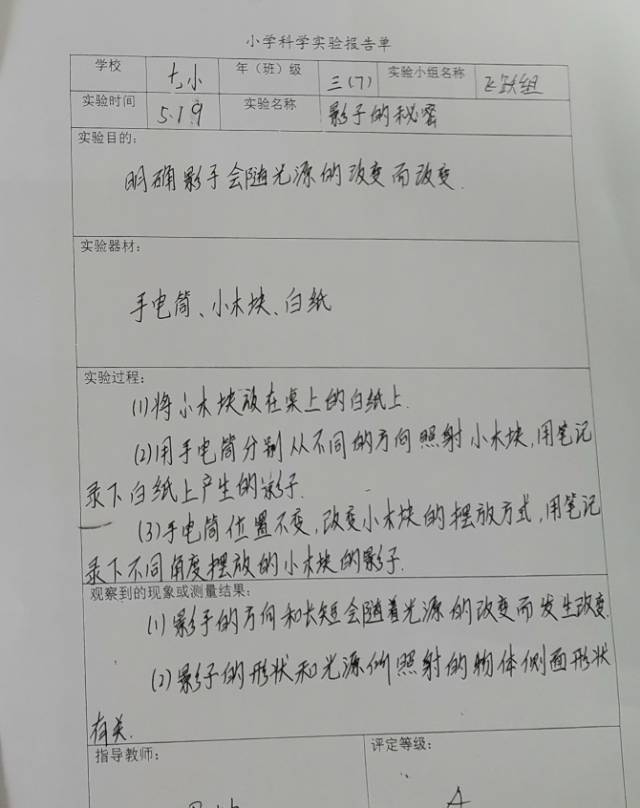 小学科学实验报告单
学校 七小 年(班)级 三(7) 实验小组名称 飞跃组
实验时间 5.19 实验名称 影子的秘密
实验目的:
明确影子会随光源的改变而改变.
实验器材:
手电筒、小木块、白纸
实验过程:
(1)将小木块放在桌上的白纸上.
(2)用手电筒分别从不同的方向照射小木块,用笔记
录下白纸上产生的影子.
(3)手电筒位置不变,改变小木块的摆放方式,用笔记
录下不同角度摆放的小木块的影子.
观察到的现象或测量结果:
(1)影子的方向和长短会随着光源的改变而发生改变.
(2)影子的形状和光源所照射的物体侧面形状
有关.
指导教师: 评定等级:
A